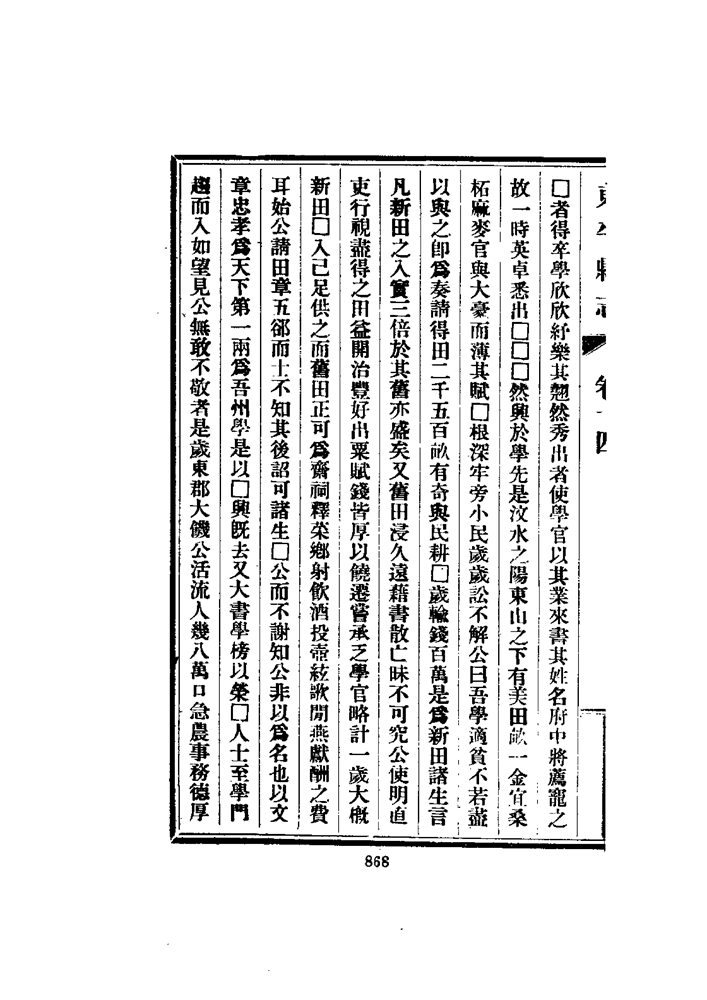 東平縣志 卷十四
□者得卒學欣欣紓樂其翹然秀出者使學官以其業來書其姓名府中將薦寵之
故一時英卓悉出□□□然興於學先是汶水之陽東山之下有美田畝一金宜桑
柘麻麥官與大豪而薄其賦□根深牢旁小民歲歲訟不解公曰吾學適貧不若盡
以與之卽爲奏請得田二千五百畝有奇與民耕□歲輸錢百萬是爲新田諸生言
凡新田之入實三倍於其舊亦盛矣又舊田浸久遠藉書散亡昧不可究公使明直
吏行視盡得之田益開治豐好出粟賦錢皆厚以饒遷嘗承乏學官略計一歲大槪
新田□入已足供之而舊田正可爲齋祠釋菜鄕射飮酒投壺絃歌閒燕獻酬之費
耳始公請田章五郤而士不知其後詔可諸生□公而不謝知公非以爲名也以文
章忠孝爲天下第一兩爲吾州學是以□興旣去又大書學榜以榮□人士至學門
趨而入如望見公無敢不敬者是歲東郡大饑公活流人幾八萬口急農事務德厚
868